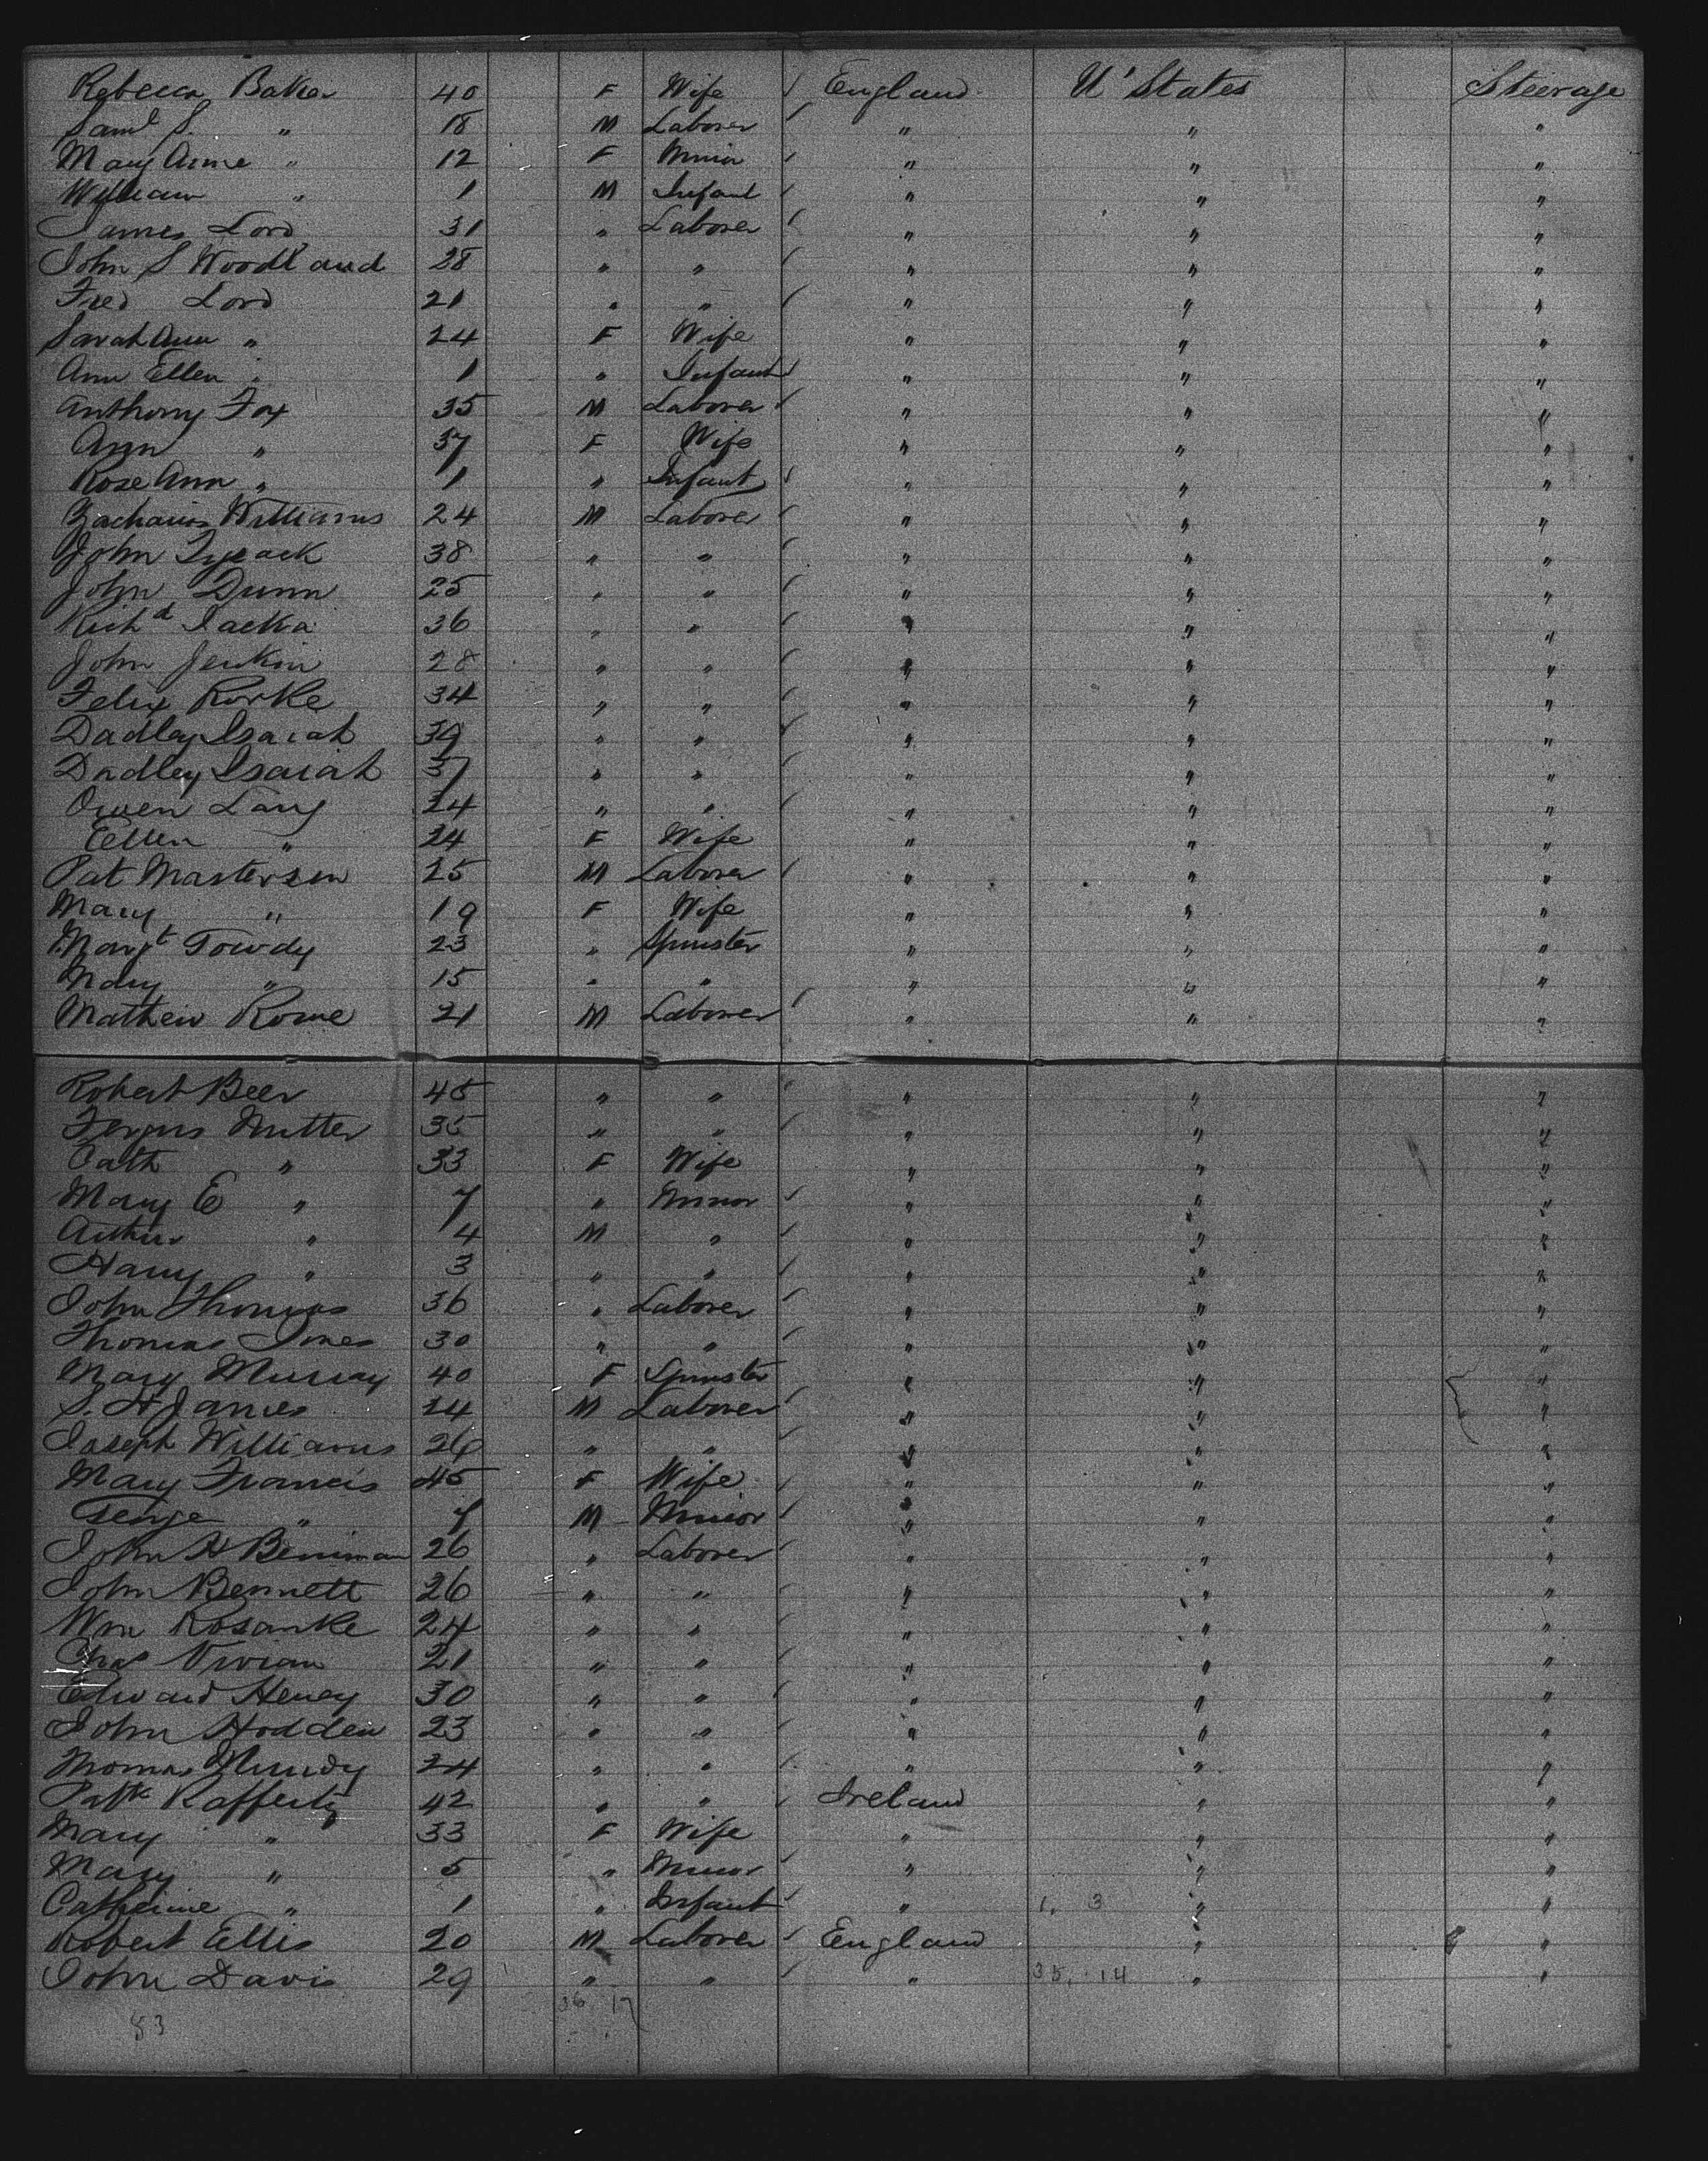 Rebecca Baker 40 F Wife England U' States Steerage
Saml S. " 18 M Laborer " " "
Mary Anne " 12 F Minor " " "
William " 1 M Infant " " "
James Lord 31 " Laborer " " "
John S Woodland 28 " " " " "
Fred Lord 21 " " " " "
Sarah Ann " 24 F Wife " " "
Ann Ellen " 1 " Infant " " "
Anthony Fox 35 M Laborer " " "
Ann " 37 F Wife " " "
Rose Ann " 1 " Infant " " "
Williams 24 M Laborer " " "
John 38 " " " " "
John Dunn 25 " " " " "
Richd Jacka 36 " " " " "
John Jenkin 28 " " " " "
Felix Rorke 34 " " " " "
Dadley Isaiah 39 " " " " "
Dadley Isaiah 37 " " " " "
Owen Lang 24 " " " " "
Ellen " 24 F Wife " " "
Pat Mastersen 25 M Laborer " " "
Mary " 19 F Wife " " "
Margt Towdy 23 " Spinster " " "
Mary " 15 " " " " "
Mathew Rowe 21 M Laborer " " "
Robert Beer 45 " " " " "
Fergus Nutter 35 " " " " "
Cath " 33 F Wife " " "
Mary E " 7 " Minor " " "
Arthur " 4 M " " " "
Harry " 3 " " " " "
John Thomas 36 " Laborer " " "
Thomas Jones 30 " " " " "
Mary Murray 40 F Spinster " " "
S. H James 24 M Laborer " " "
Joseph Williams 26 " " " " "
Mary Francis 45 F Wife " " "
George " 7 M Minor " " "
John H Benniman 26 " Laborer " " "
John Bennett 26 " " " " "
Wm Rosanke 24 " " " " "
Chas Vivian 21 " " " " "
Edward Heney 30 " " " " "
John Hodden 23 " " " " "
Thomas Mundy 24 " " " " "
Patk Rafferty 42 " " Ireland " "
Mary " 33 F Wife " " "
Mary " 5 " Minor " " "
Catherine " 1 " Infant " 1. 3 " "
Robert Ellis 20 M Laborer England " "
John Davis 29 " " " 35. 14 " "
36 17
53